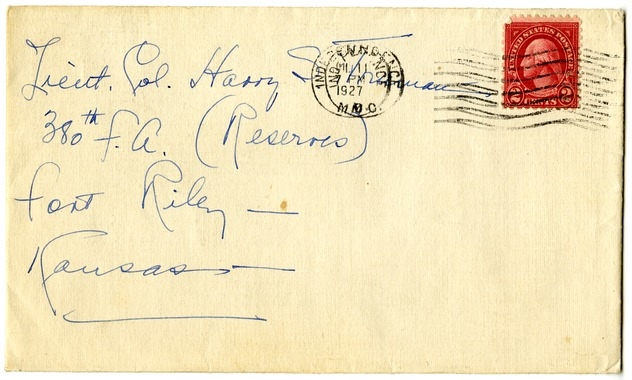 Lieut. Col. Harry S Truman
380th F.A. (Reserves)
Fort Riley —
Kansas —
INDEPENDENCE
11
PM
1927
MO.
UNITED STATES POSTAGE
2 CENTS 2